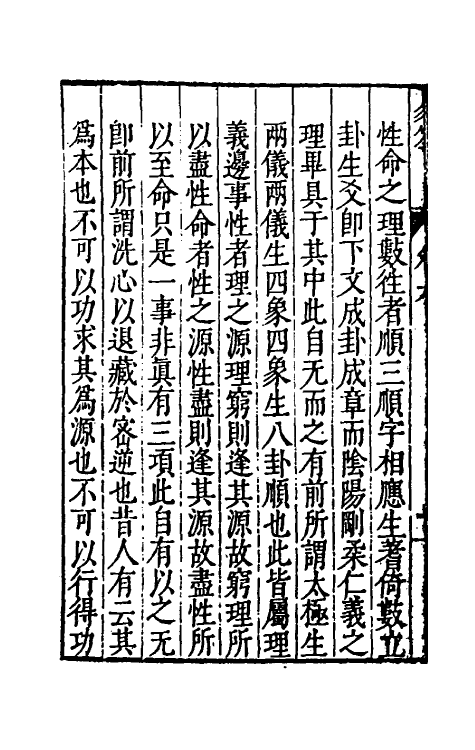 性命之理數徃者順三順字相應生蓍倚數立
卦生爻卽下文成卦成章而陰陽剛柔仁義之
理畢具于其中此自无而之有前所謂太極生
兩儀兩儀生四象四象生八卦順也此皆屬理
義邊事性者理之源理窮則逢其源故窮理所
以盡性命者性之源性盡則逢其源故盡性所
以至命只是一事非眞有三項此自有以之无
卽前所謂洗心以退藏於密逆也昔人有云其
爲本也不可以功求其爲源也不可以行得功